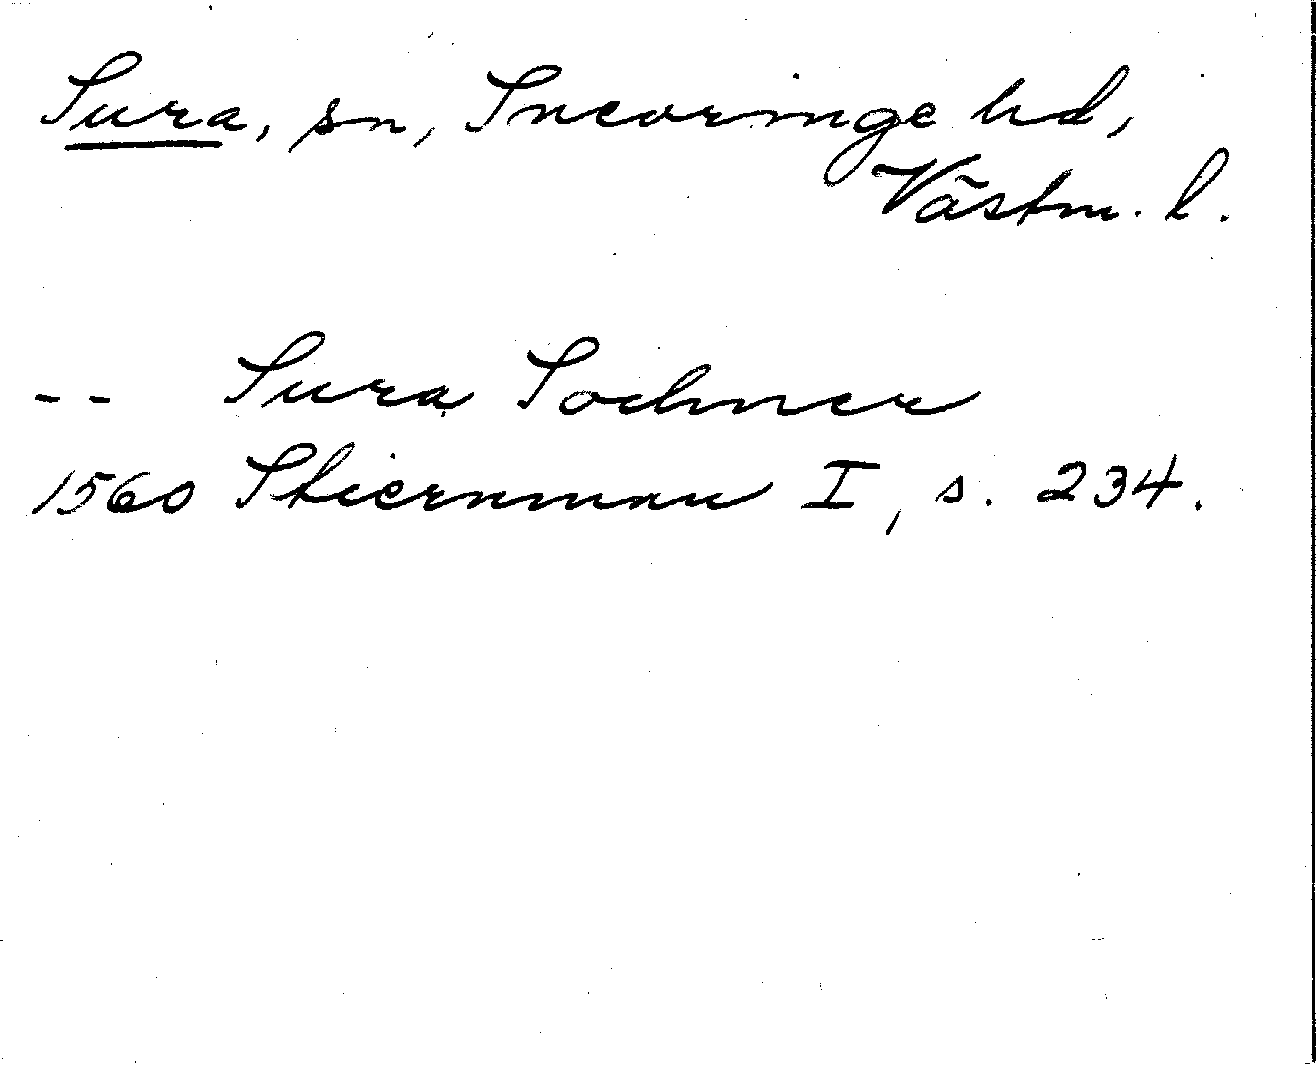 Sura, sn, Snevringe hd,
Västm. l.
-- Sura Sochner
1560 Stiernman I, s. 234.